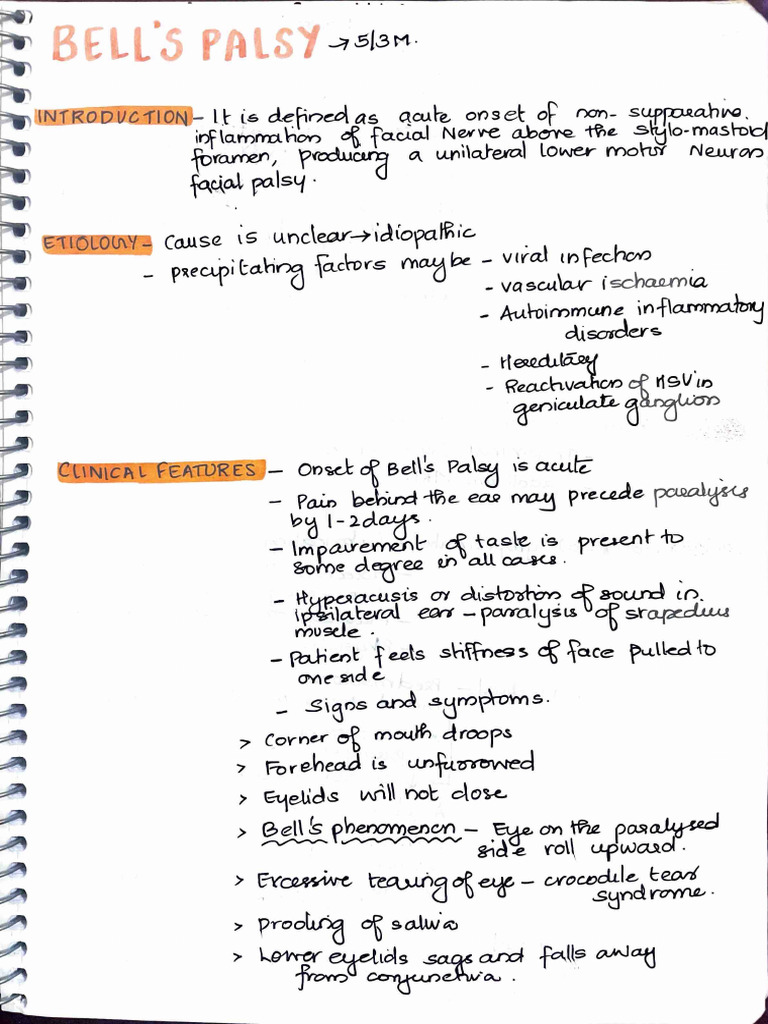 BELL'S PALSY → 5/3 M.
INTRODUCTION - It is defined as acute onset of non- suppurative
inflammation of facial Nerve above the stylo-mastoid
foramen, producing a unilateral lower motor Neuron
facial palsy.
ETIOLOGY - Cause is unclear → idiopathic
- precipitating factors maybe - viral infection
- vascular ischaemia
- Autoimmune inflammatory
disorders
- Hereditary
- Reactivation of HSV in
geniculate ganglion
CLINICAL FEATURES - Onset of Bell's Palsy is acute
- Pain behind the ear may precede paralysis
by 1-2 days.
- Impairement of taste is present to
some degree in all cases.
- Hyperacusis or distortion of sound in
ipsilateral ear - paralysis of stapedius
muscle.
- Patient feels stiffness of face pulled to
one side
- Signs and symptoms.
> Corner of mouth droops
> Forehead is unfurrowed
> Eyelids will not close
> Bell's phenomenon - Eye on the paralysed
side roll upward.
> Excessive tearing of eye - crocodile tear
syndrome.
> Drooling of saliva
> Lower eyelids sags and falls away
from conjunctiva.